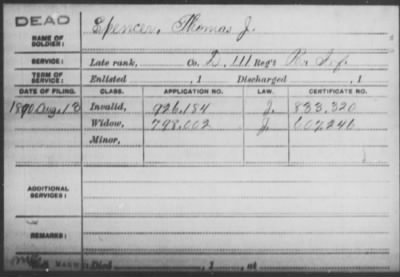 DEAD
NAME OF SOLDIER: Spencer, Thomas J.
SERVICE: Late rank, Co. D, 111 Reg't Pa. Inf.
TERM OF SERVICE: Enlisted , 1 Discharged , 1
DATE OF FILING. CLASS. APPLICATION NO. LAW. CERTIFICATE NO.
1890 Aug. 18 Invalid, 926.184 J. 833.320
Widow, 798.002 J. 607.246
Minor,
ADDITIONAL SERVICES:
REMARKS:
Died , 1 , at